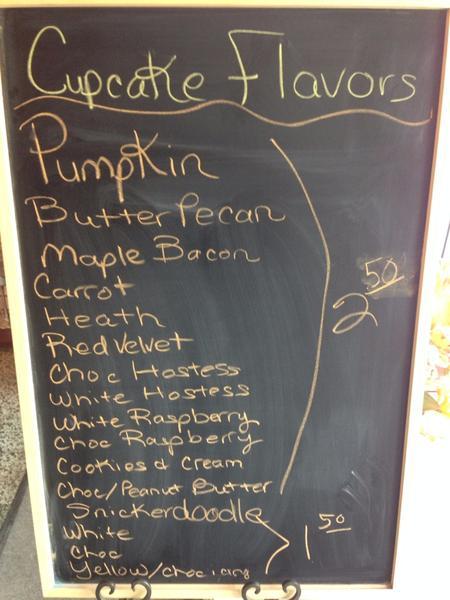 Cupcake Flavors
Pumpkin
Butter Pecan
Maple Bacon
Carrot
Heath
Red Velvet
Choc Hostess
White Hostess
White Raspberry
Choc Raspberry
Cookies & Cream
Choc/Peanut Butter
2 50
Snickerdoodle
White
Choc
Yellow/choc icing
1 50